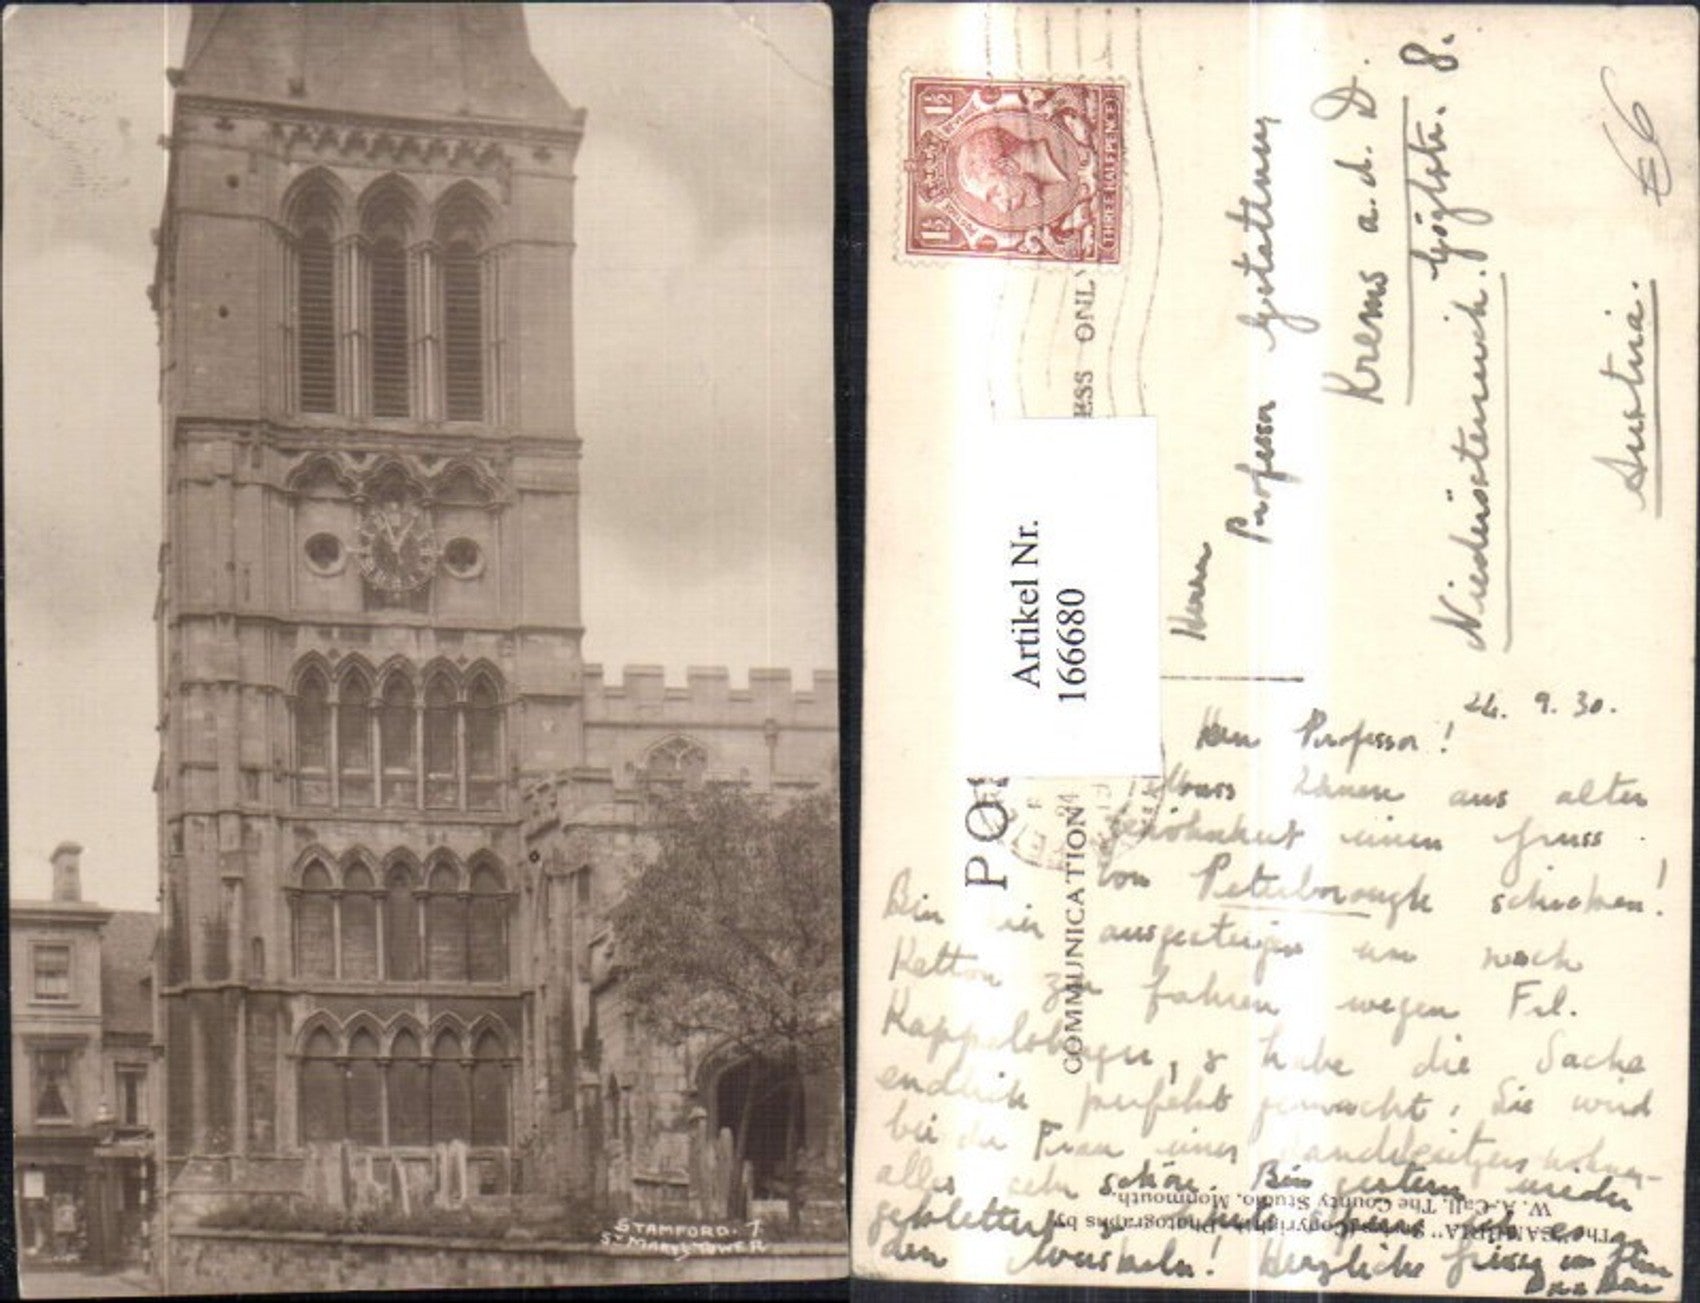 STAMFORD. 7
ST MARYS TOWER
1½ 1½
THREE HALFPENCE
POS
ESS ONLY
COMMUNICATION
Artikel Nr.
166680
Herrn
Professor
Krems a. d. D.
8.
Niederösterreich.
Austria.
£6
24. 9. 30.
Herr Professor!
Muss Ihnen aus alter
Gewohnheit einen Gruss
von Peterborough schicken!
Bin hier ausgestiegen um nach
Ketton zu fahren wegen Frl.
habe die Sache
endlich perfekt gemacht. Sie wird
bei der Frau eines Landsbesitzers wohnen
alles sehr schön. Bin gestern wieder
geklettert
den Muskeln! Herzliche Grüsse
The "CAMBRIA" Series Copyright Photographs by
W. A. Call, The County Studio, Monmouth.